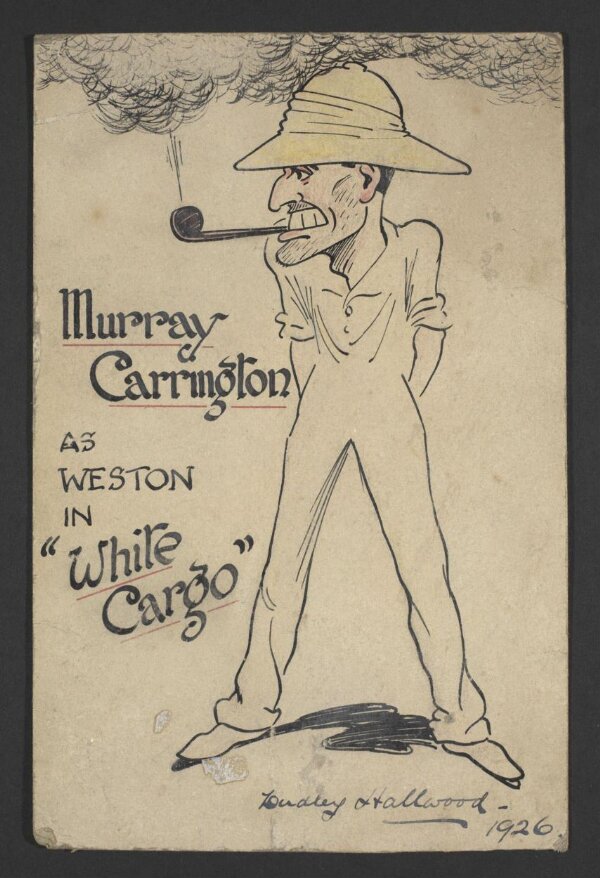 Murray
Carrington
AS
WESTON
IN
"White
Cargo"
Dudley Hallwood -
1926.